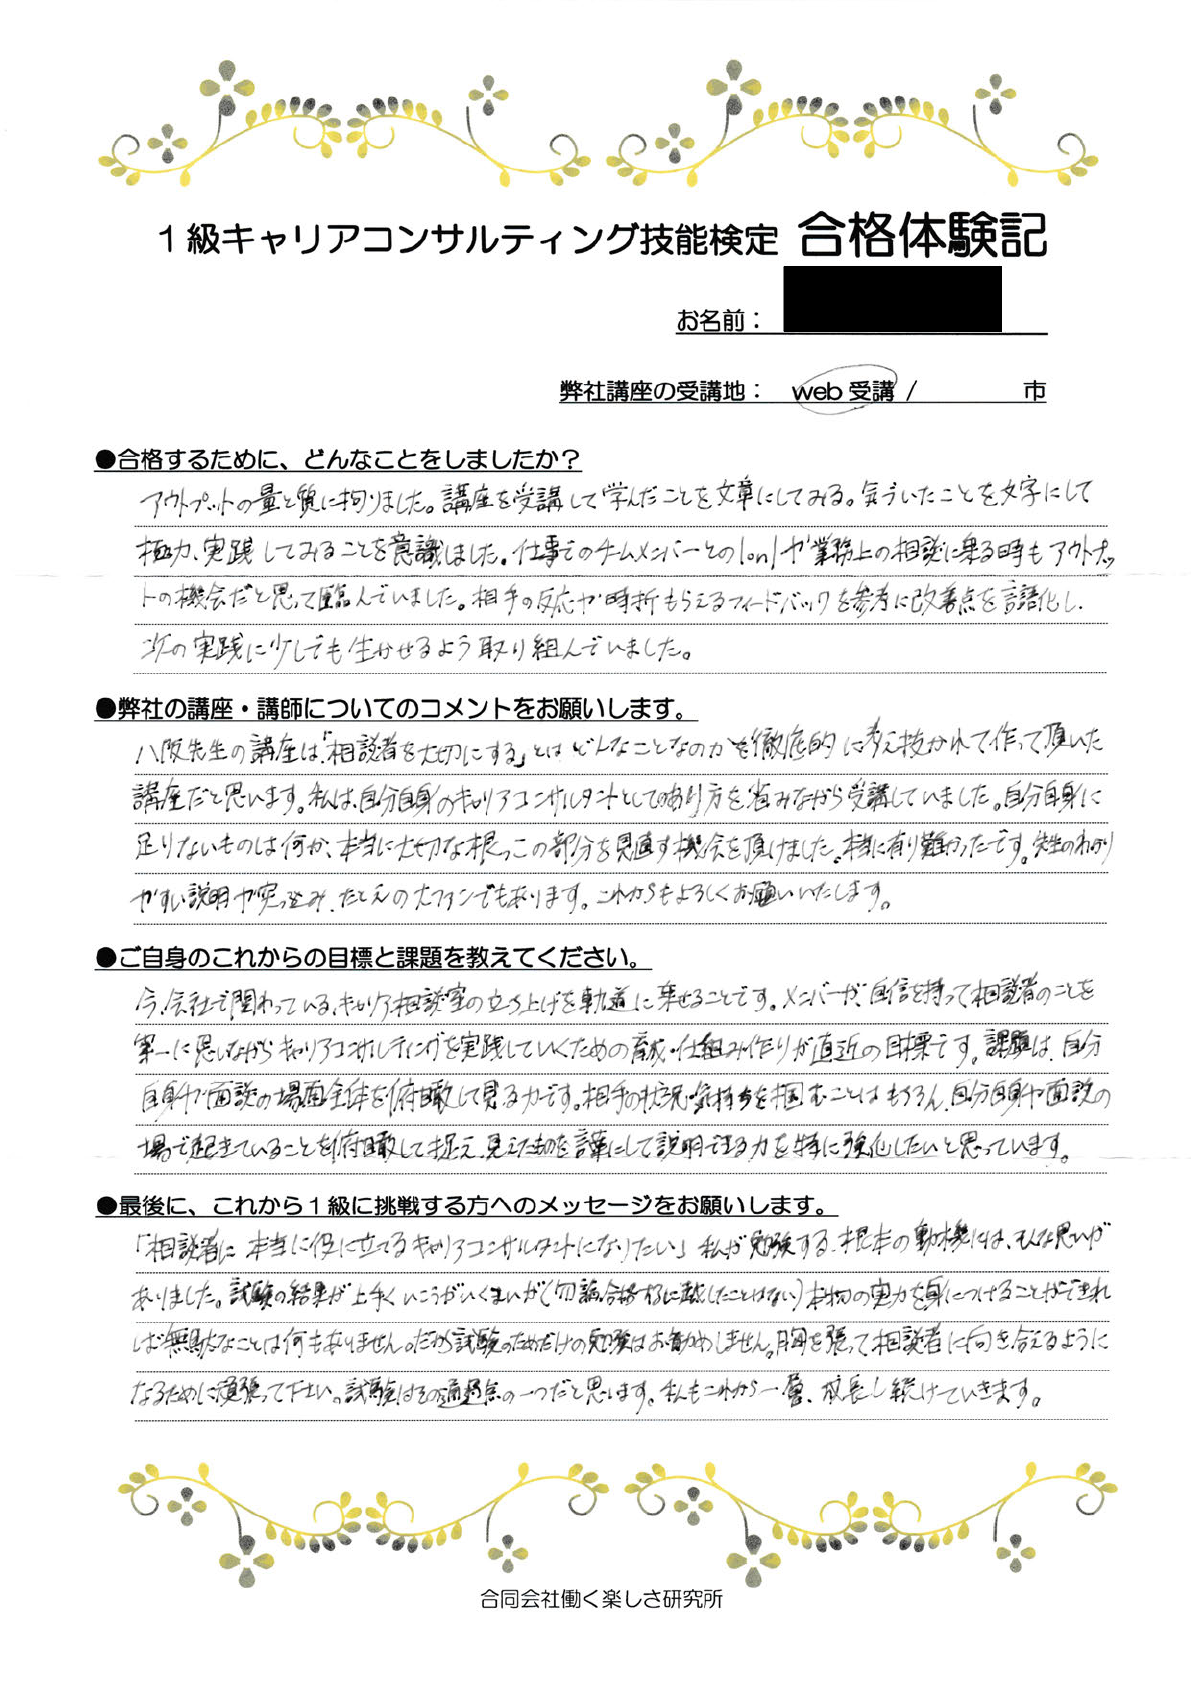 1級キャリアコンサルティング技能検定 合格体験記
お名前：
弊社講座の受講地： web 受講 / 市
●合格するために、どんなことをしましたか？
アウトプットの量と質に拘りました。講座を受講して学んだことを文章にしてみる。気づいたことを文字にして
極力、実践してみることを意識しました。仕事でのチームメンバーとの1on1や業務上の相談に乗る時もアウトプッ
トの機会だと思って臨んでいました。相手の反応や時折もらえるフィードバックを参考に改善点を言語化し、
次の実践に少しでも生かせるよう取り組んでいました。
●弊社の講座・講師についてのコメントをお願いします。
八阪先生の講座は、「相談者を大切にする」とはどんなことなのかを徹底的に考え抜かれて作って頂いた
講座だと思います。私は、自分自身のキャリアコンサルタントとしてのあり方を省みながら受講していました。自分自身に
足りないものは何か、本当に大切な根っこの部分を見直す機会を頂けました。本当に有り難かったです。先生のわかり
やすい説明や突っ込み、たとえの大ファンでもあります。これからもよろしくお願いいたします。
●ご自身のこれからの目標と課題を教えてください。
今、会社で関わっている、キャリア相談室の立ち上げを軌道に乗せることです。メンバーが、自信を持って相談者のことを
第一に思いながらキャリアコンサルティングを実践していくための育成・仕組み作りが直近の目標です。課題は、自分
自身や面談の場面全体を俯瞰して見る力です。相手の状況・気持ちを掴むことはもちろん、自分自身や面談の
場で起きていることを俯瞰して捉え、見えたものを言葉にして説明できる力を特に強化したいと思っています。
●最後に、これから1級に挑戦する方へのメッセージをお願いします。
「相談者に本当に役に立てるキャリアコンサルタントになりたい」私が勉強する根本の動機には、そんな思いが
ありました。試験の結果が上手くいこうがいくまいが(勿論、合格するに越したことはない)本物の実力を身につけることができれ
ば無駄なことは何もありません。だから試験のためだけの勉強はお勧めしません。胸を張って相談者に向き合えるように
なるために頑張って下さい。試験はその通過点の一つだと思います。私もこれから一層、成長し続けていきます。
合同会社働く楽しさ研究所